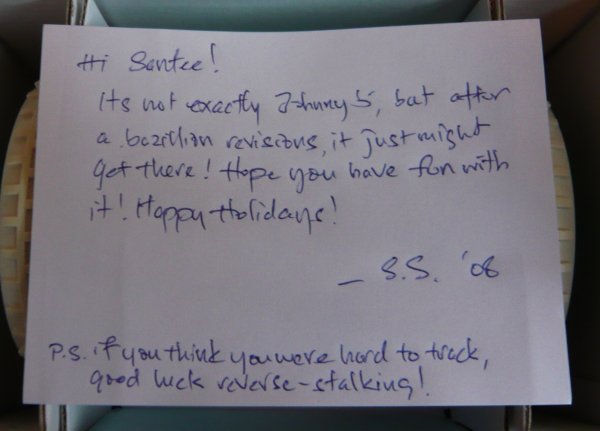 Hi Santee!
Its not exactly Johnny 5, but after
a bazillion revisions, it just might
get there! Hope you have fun with
it! Happy Holidays!
— S.S. '08
P.S. if you think you were hard to track,
good luck reverse-stalking!